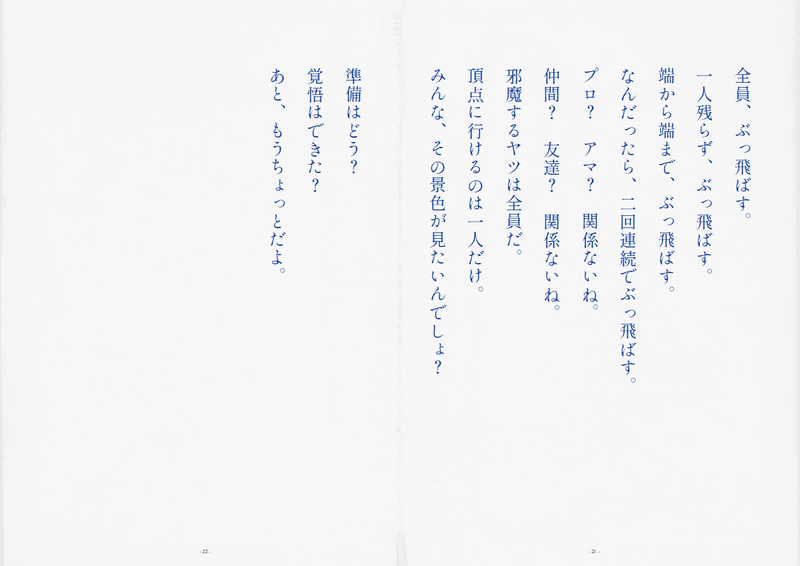 全員、ぶっ飛ばす。
一人残らず、ぶっ飛ばす。
端から端まで、ぶっ飛ばす。
なんだったら、二回連続でぶっ飛ばす。
プロ？　アマ？　関係ないね。
仲間？　友達？　関係ないね。
邪魔するヤツは全員だ。
頂点に行けるのは一人だけ。
みんな、その景色が見たいんでしょ？
- 21 -
準備はどう？
覚悟はできた？
あと、もうちょっとだよ。
- 22 -